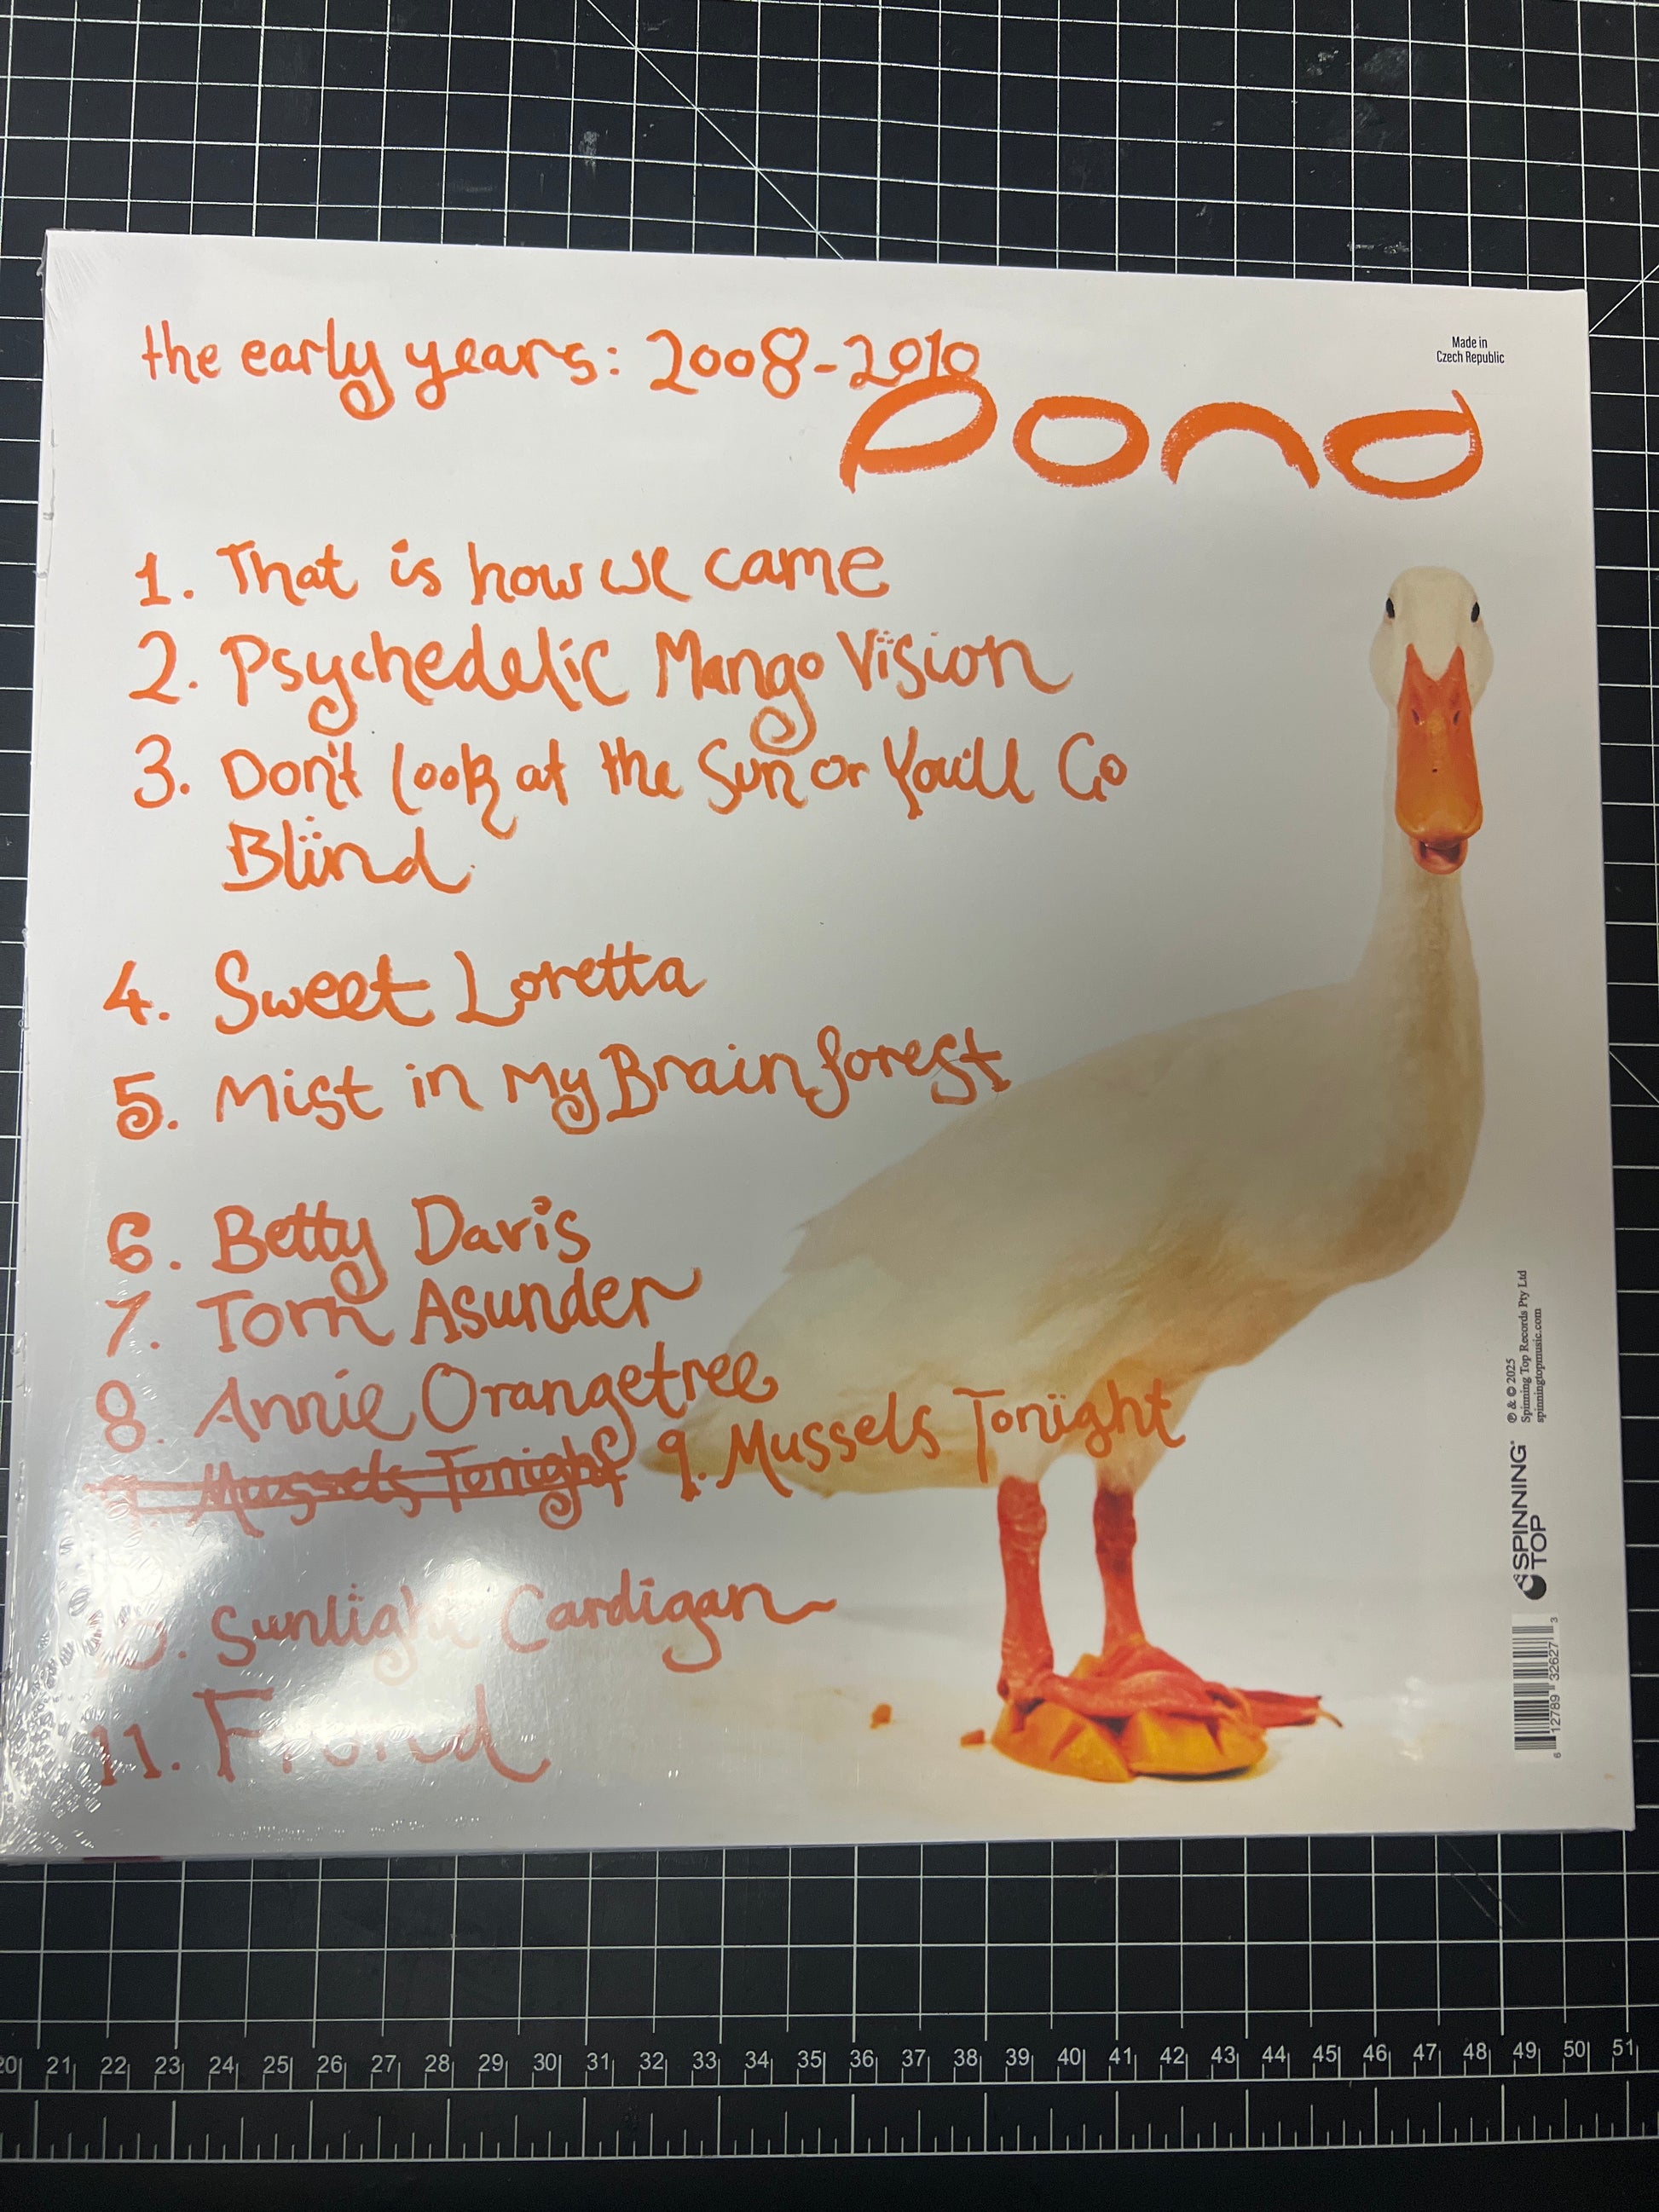 the early years: 2008-2010
Made in
Czech Republic
Pond
1. That is how we came
2. Psychedelic Mango Vision
3. Don't look at the Sun or You'll Go
Blind
4. Sweet Loretta
5. Mist in My Brain forest
6. Betty Davis
7. Torn Asunder
8. Annie Orangetree
Mussels Tonight 9. Mussels Tonight
Sunlight Cardigan
11. Frond
℗ & © 2025
Spinning Top Records Pty Ltd
spinningtopmusic.com
SPINNING
TOP
6 12789 32627 3
20 21 22 23 24 25 26 27 28 29 30 31 32 33 34 35 36 37 38 39 40 41 42 43 44 45 46 47 48 49 50 51